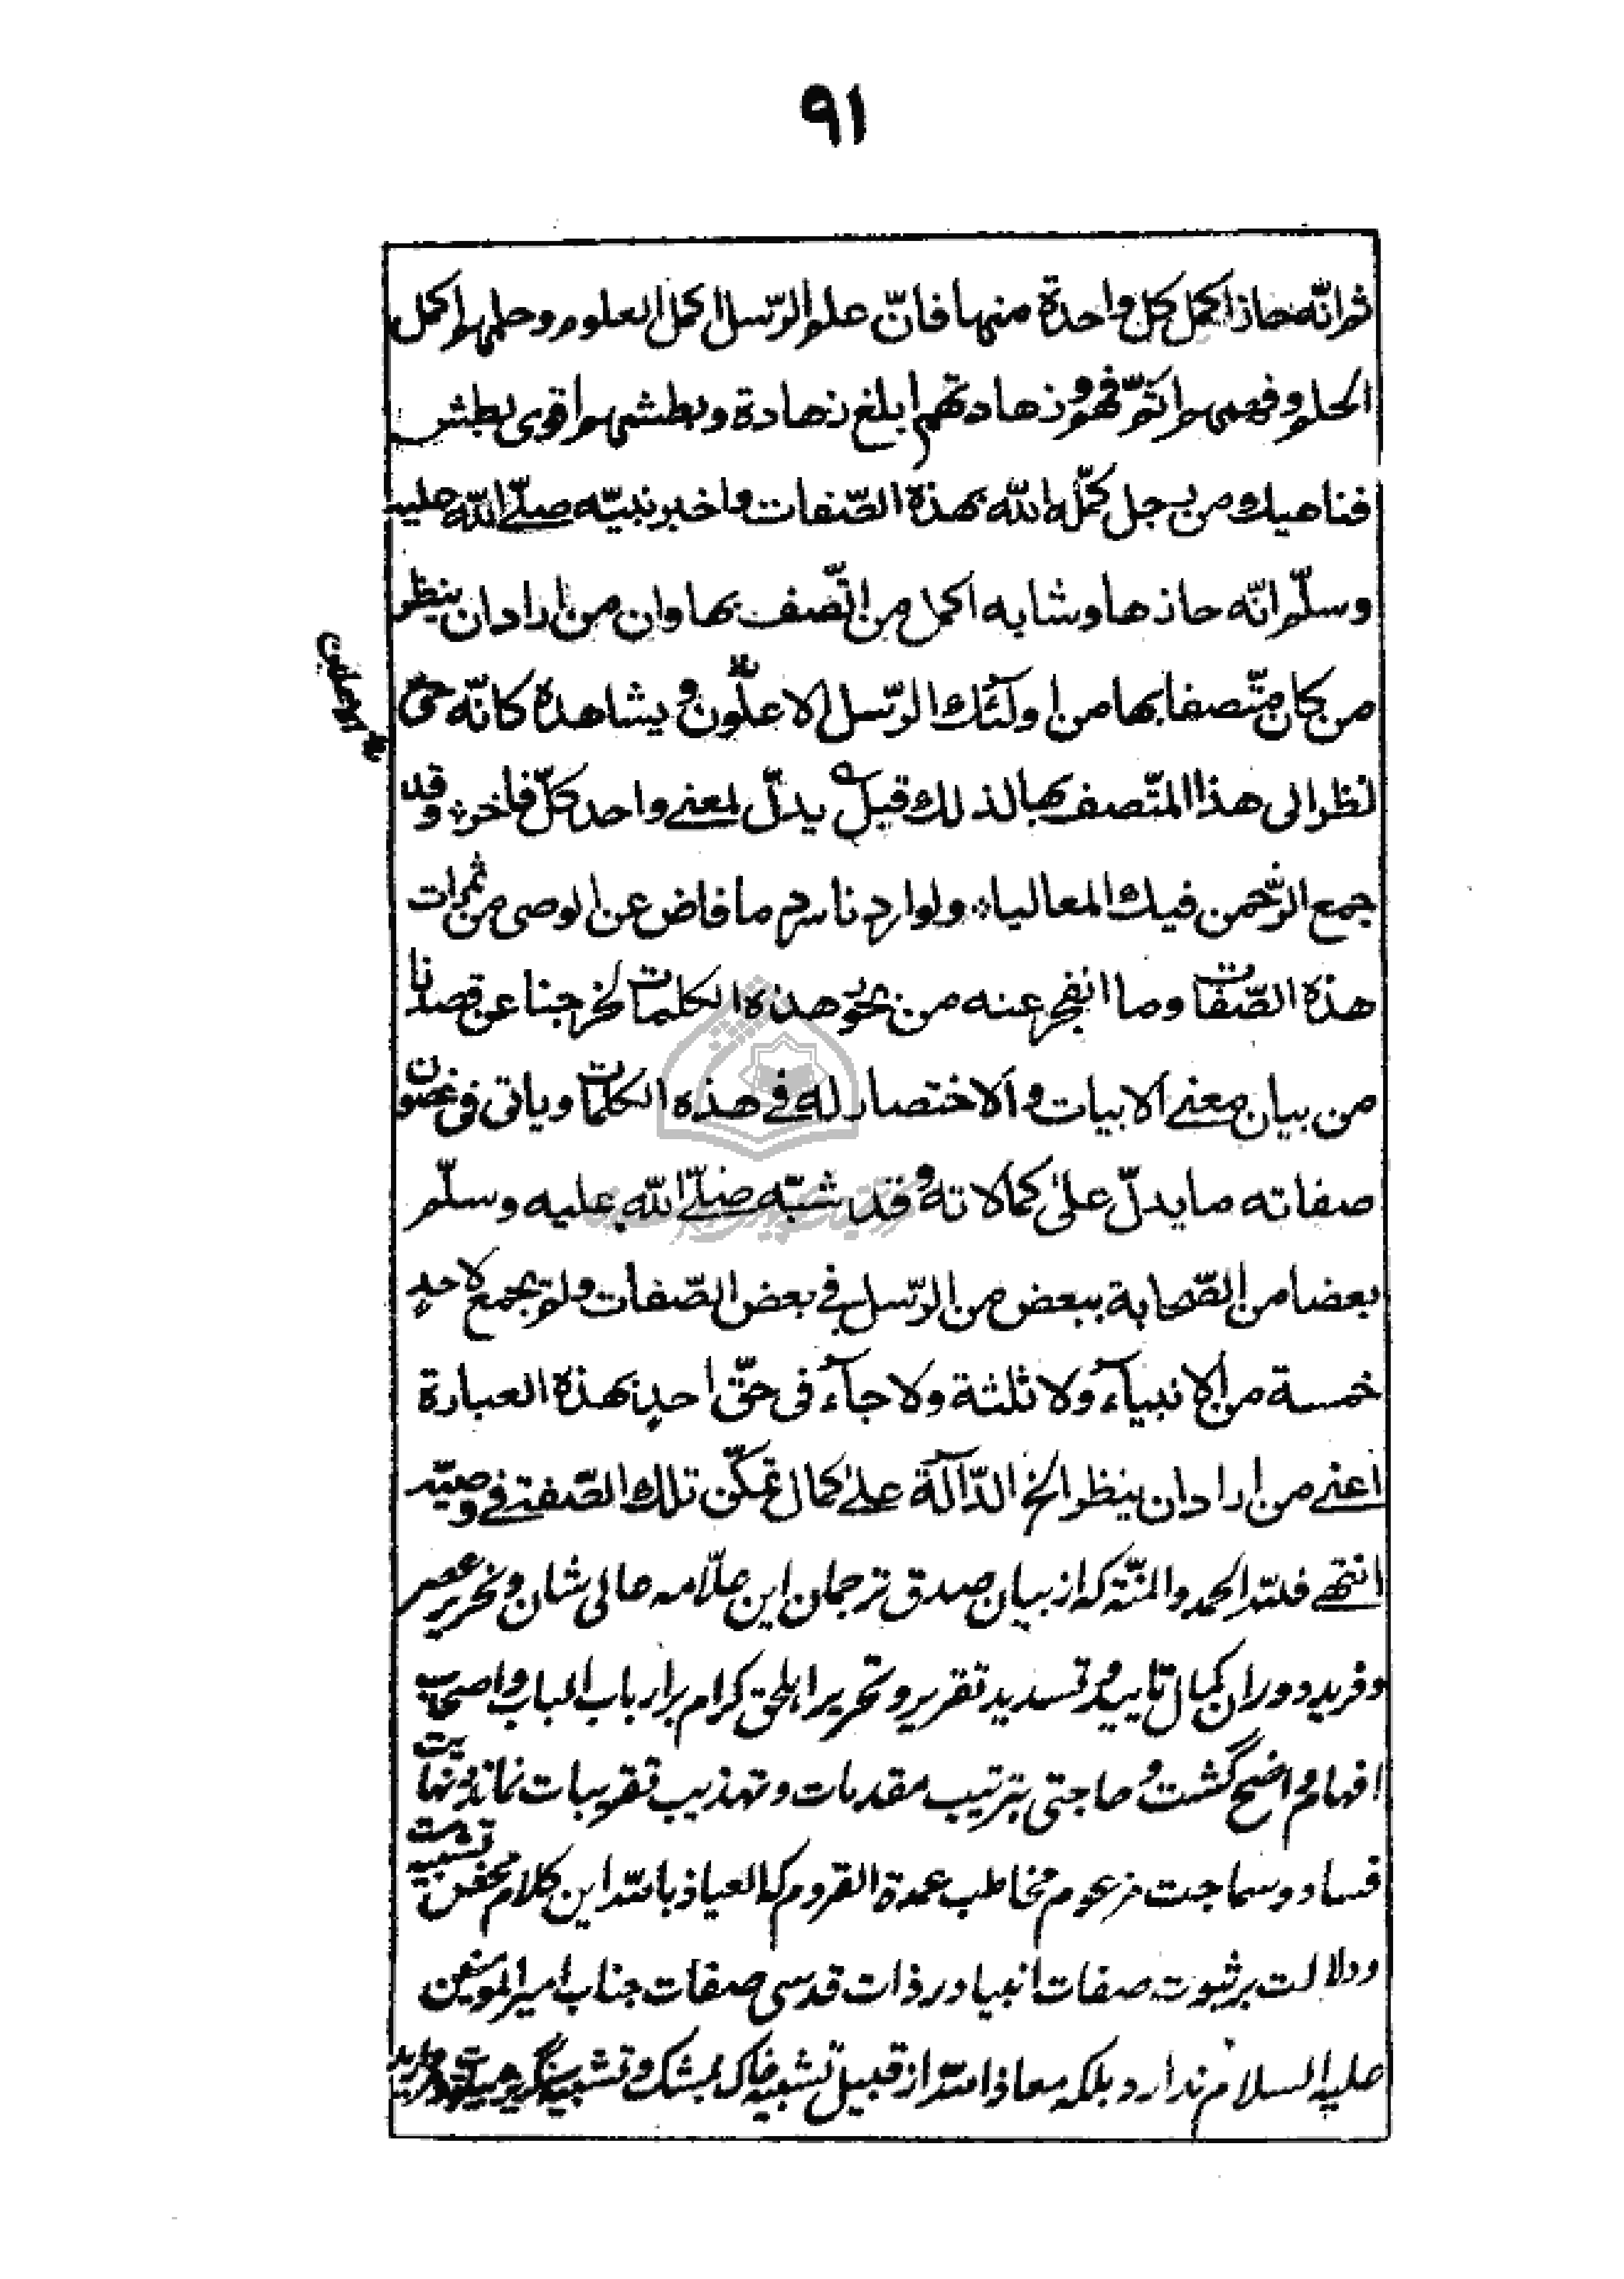 ٩١
ثم انّه حاز اكمل كل واحدة منها فانّ علم الرّسل اكمل العلوم وحلمهم اكمل
الحلم وفهمهم اتمّ فهم وزهادتهم ابلغ زهادة وبطشهم اقوى بطش
فناهيك من رجل كمّله الله بهذه الصّفات واخبر نبيّه صلّے الله عليه
وسلّم انّه حازها وشابه اكمل من اتّصف بها وان من اراد ان ينظر
من كان متّصفا بها من اولٓئك الرّسل الاعلّون ويشاهده كانّه حىّ
* الاعلين
نظر الى هذا المتّصف بها لذلك قيل ؎ يدلّ لمعنے واحد كلّ فاخر * وقد
جمع الرّحمن فيك المعاليا * ولو اردنا سرد ما فاض عن الوصى من ثمرات
هذه الصّفات وما انفجر عنه من بحور هذه الكلمات لخرجنا عن قصدنا
من بيان معنے الابيات والاختصار له فے هذه الكلمات وياتى فى غضون
صفاته ما يدلّ علىٰ كمالاته وقد شبّه صلّے الله عليه وسلّم
بعضا من الصّحابة ببعض من الرّسل فے بعض الصّفات ولم يجمع لاحدٍ
خمسة من الانبيآء ولا ثلثة ولا جآء فى حقّ احدٍ بهذه العبارة
اعنے من اراد ان ينظر الخ الدّآلّة علےٰ كمال تمكّن تلك الصّفة فے وصيّه
انتهے فللّه الحمد والمنّة كه از بيان صدق ترجمان اين علّامه عالى شان ونحرير عصر
وفريد دوران كمال تاييد وتسديد تقرير وتحرير اهلحق كرام برار باب الباب واصحاب
افهام واضح گشت وحاجتى بترتيب مقدمات وتهذيب تقريبات نماند ونهايت
فساد وسماجت مزعوم مخاطب عمدة القروم كه العياذ بالله اين كلام محض تشبيه است
ودلالت بر ثبوت صفات انبيا در ذات قدسى صفات جناب امير المومنين
عليه السلام ندارد بلكه معاذ الله از قبيل تشبيه خاك بمشك وتشبيه سنگريزه